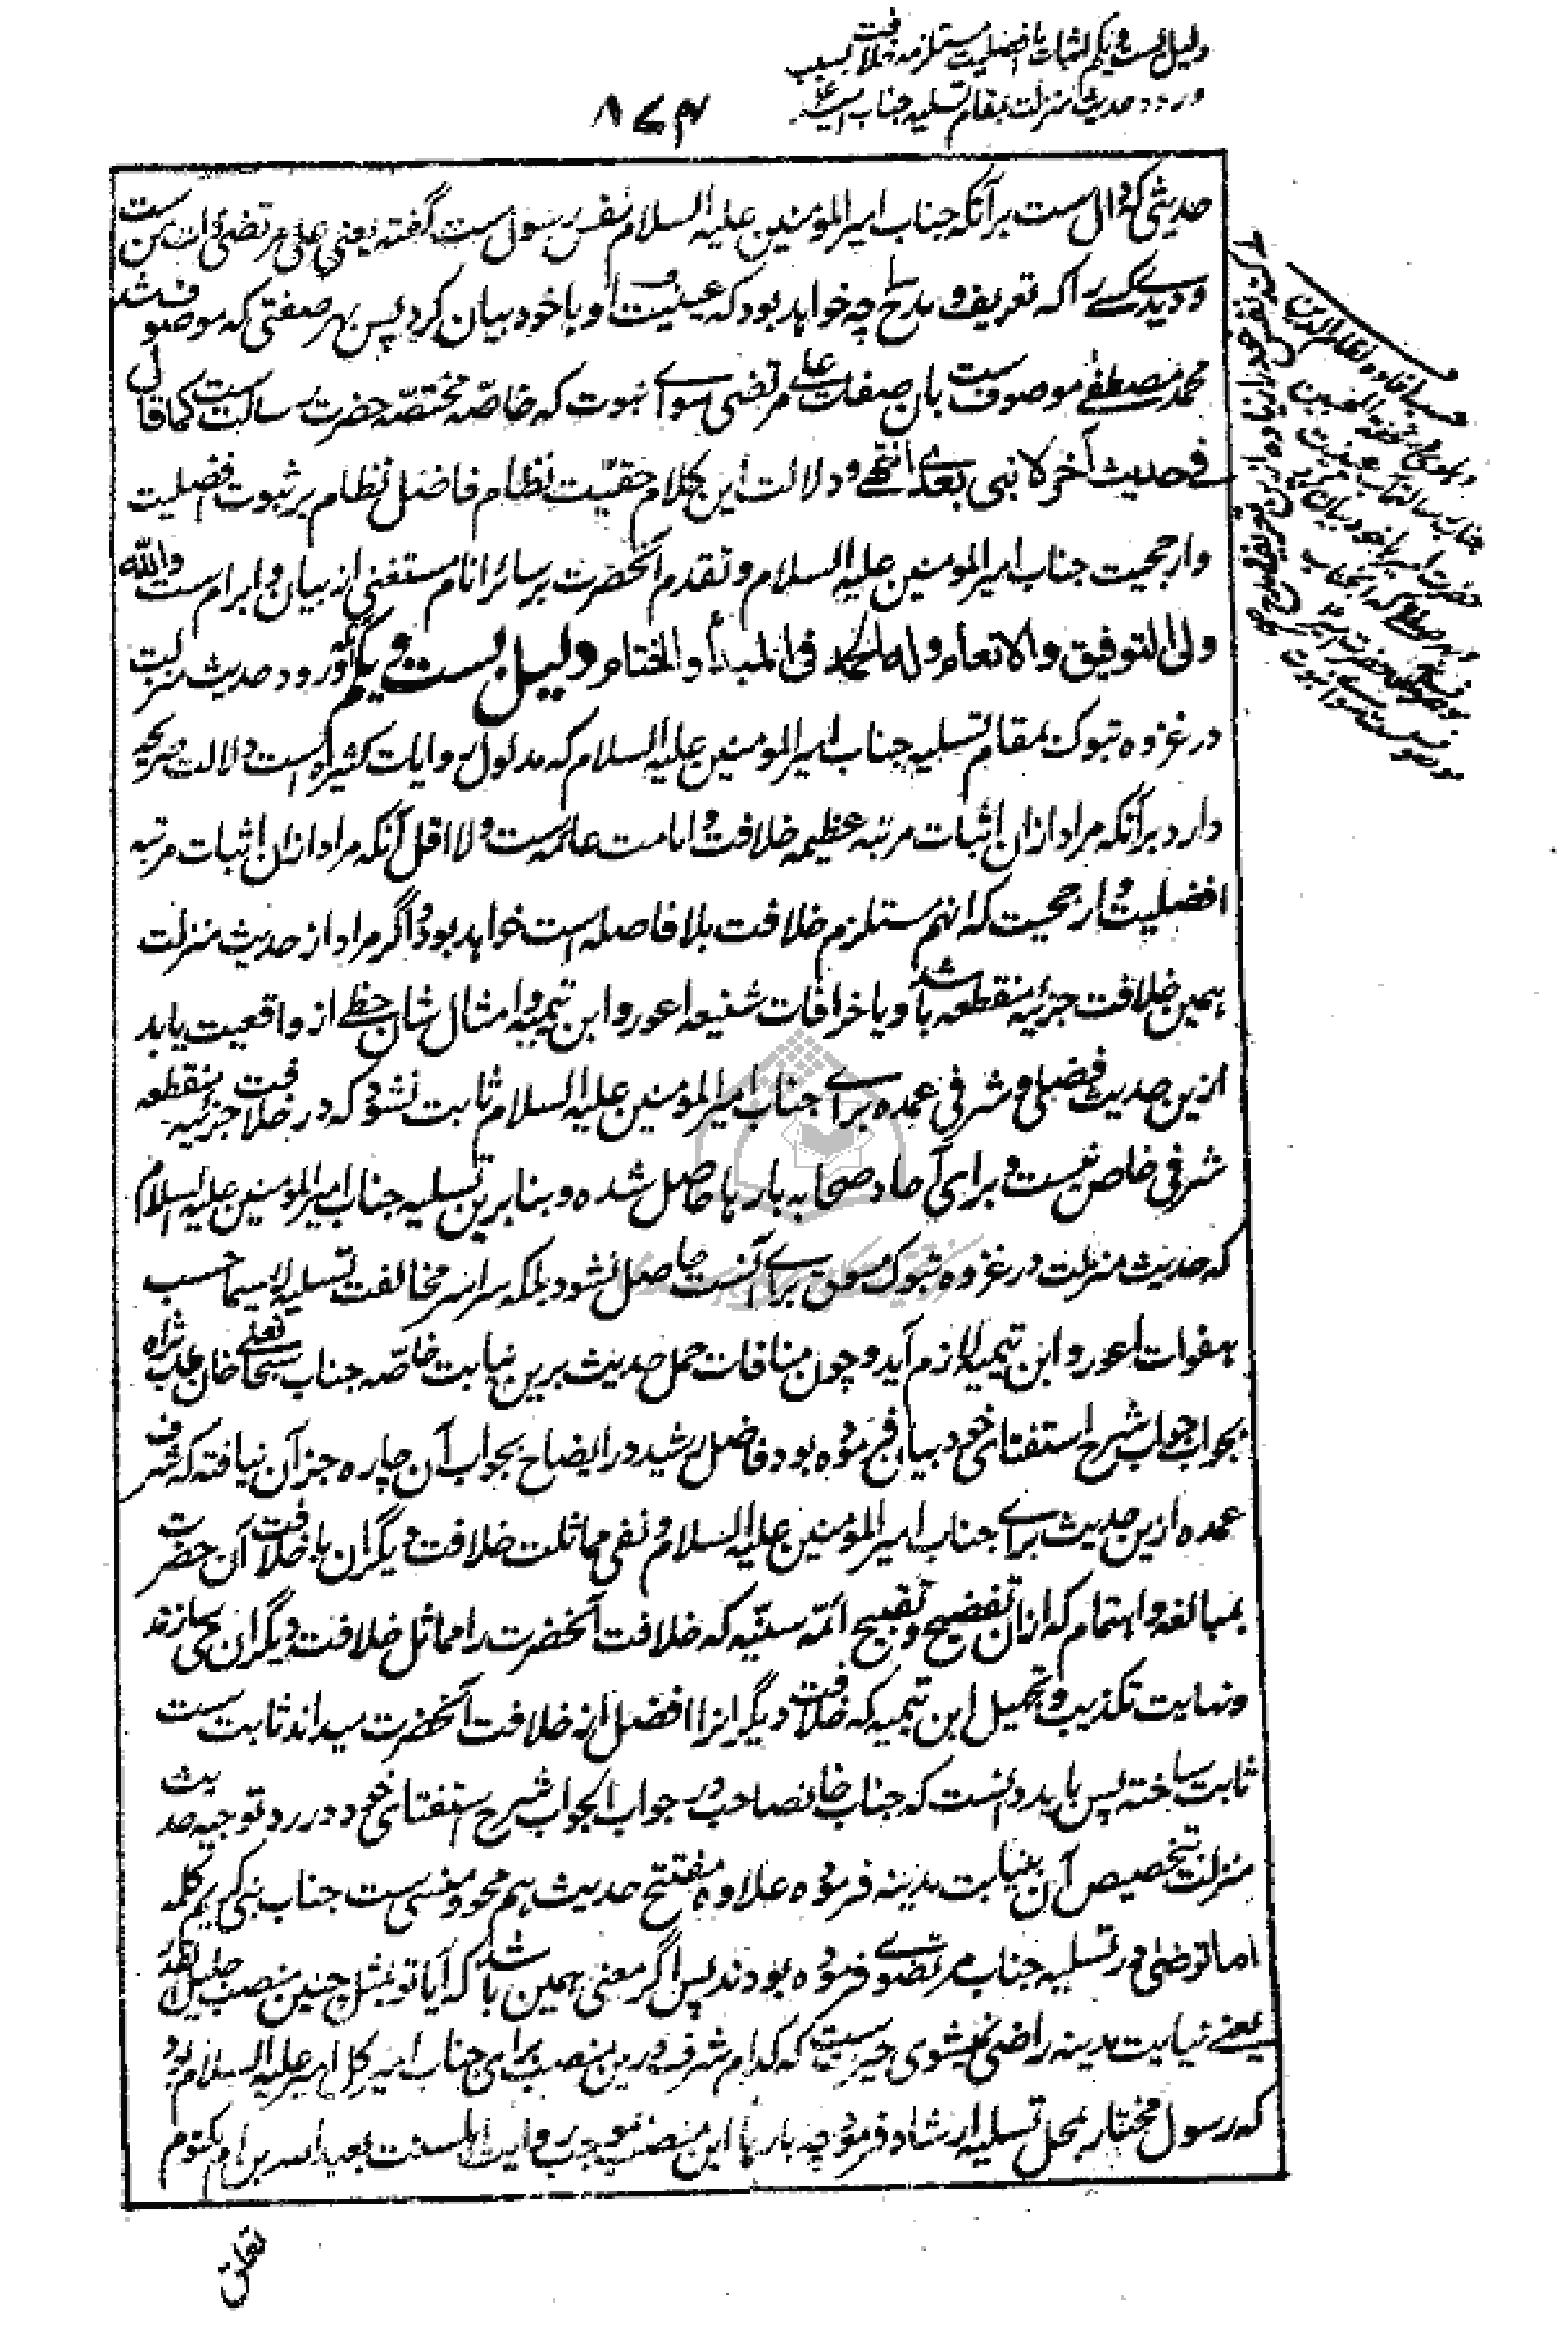 دلیل بست و یکم اثبات افضلیت مستلزمه خلافت بسبب
ورود حدیث منزلت بمقام تسلیه جناب
۸۷۴
حدیثی که دال ست برآنکه جناب امیرالمؤمنین علیه السلام نفس رسول ست گفته یعنی علی مرتضی ذات من ست
و دیگرے را که تعریف و مدح چه خواهد بود که عینیت او با خود بیان کرد پس بهر صفتی که موصوف شد
محمد مصطفی موصوف ست بان صفات علی مرتضی سواے نبوت که خاصّه مختصّه حضرت رسالت ست کما قال
فی حدیث آخر لا نبی بعدی انتهی و دلالت این کلام حقیّت نظام فاضل نظام بر ثبوت افضلیت
وارجحیت جناب امیرالمومنین علیه السلام و تقدم آنحضرت بر سائر انام مستغنی از بیان و ابرام ست والله
ولی التوفیق والانعام وله الحمد فی المبدأ والختام دلیل بست و یکم آنکه ورود حدیث منزلت
در غزوه تبوک بمقام تسلیه جناب امیرالمومنین علیه السلام که مدلول روایات کثیره است دلالت صریحه
دارد برآنکه مراد ازان اثبات مرتبه عظیمه خلافت و امامت عامه است و لا اقل آنکه مراد ازان اثبات مرتبه
افضلیت و ارجحیت که انهم مستلزم خلافت بلا فاصله است خواهد بود و اگر مراد از حدیث منزلت
همین خلافت جزئیه منقطعه باشد و یا خرافات شنیعه اعور و ابن تیمیه و امثال شان حظے از واقعیت یابد
ازین حدیث فضلی و شرفی عمده براے جناب امیرالمومنین علیه السلام ثابت نشود که در خلافت جزئیه منقطعه
شرفی خاص نیست و برای آحاد صحابه بارها حاصل شده و بنابرین تسلیه جناب امیرالمومنین علیه السلام
که حدیث منزلت در غزوه تبوک مسوق براے آنست حاصل نشود بلکه سراسر مخالفت تسلیه لاسیما حسب
هفوات اعور و ابن تیمیه لازم آید و چون منافات حمل حدیث برین نیابت خاصّه جناب سبحانعلی خان طاب ثراه
بجواب جواب شرح استفتای خود بیان فرموده بود فاضل رشید در ایضاح بجواب آن چاره جز آن نیافته که شرف
عمده ازین حدیث براے جناب امیرالمؤمنین علیه السلام و نفی مماثلت خلافت دیگران با خلافت آن حضرت
بمبالغه و اهتمام که ازان تفضیح و تقبیح ائمّه سنّیه که خلافت آنحضرت را مماثل خلافت دیگران می سازند
و نهایت تکذیب و تجهیل ابن تیمیه که خلافت دیگران را افضل از خلافت آنحضرت میداند ثابت ست
ثابت ساخته پس باید دانست که جناب خانصاحب در جواب الجواب شرح استفتای خود در رد توجیه حدیث
منزلت بتخصیص آن بنیابت مدینه فرموده علاوه مفتتح حدیث هم محو و منسی ست جناب نبی کریم کلمه
اما ترضی در تسلیه جناب مرتضوے فرموده بودند پس اگر معنی همین باشد که آیا تو بمثل چنین منصب جلیل القدر
یعنے نیابت مدینه راضی نمیشوی حیرت ست که کدام شرف درین منصب برای جناب امیر علیه السلام بود
که رسول مختار بمحل تسلیه ارشاد فرمود چه بارها این منصب بموجب روایت اهلسنت بعبدالله بن ام مکتوم
تعلق